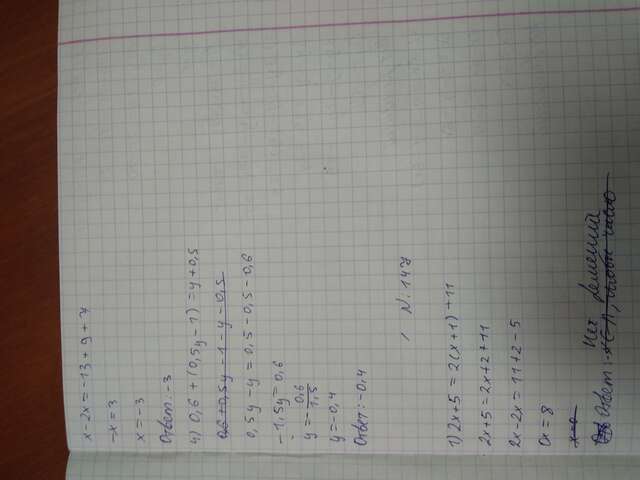 x - 2x = -13 + 9 + 7
-x = 3
x = -3
Ответ: -3
4) 0,6 + (0,5y - 1) = y + 0,5
0,6 + 0,5y - 1 - y - 0,5
0,5y - y = 0,5 - 0,5 - 0,6
-1,5y = 0,6
y = - 0,6/1,5
y = -0,4
Ответ: -0,4
N. 147
1) 2x + 5 = 2(x + 1) + 11
2x + 5 = 2x + 2 + 11
2x - 2x = 11 + 2 - 5
0x = 8
Нет решений
Ответ: